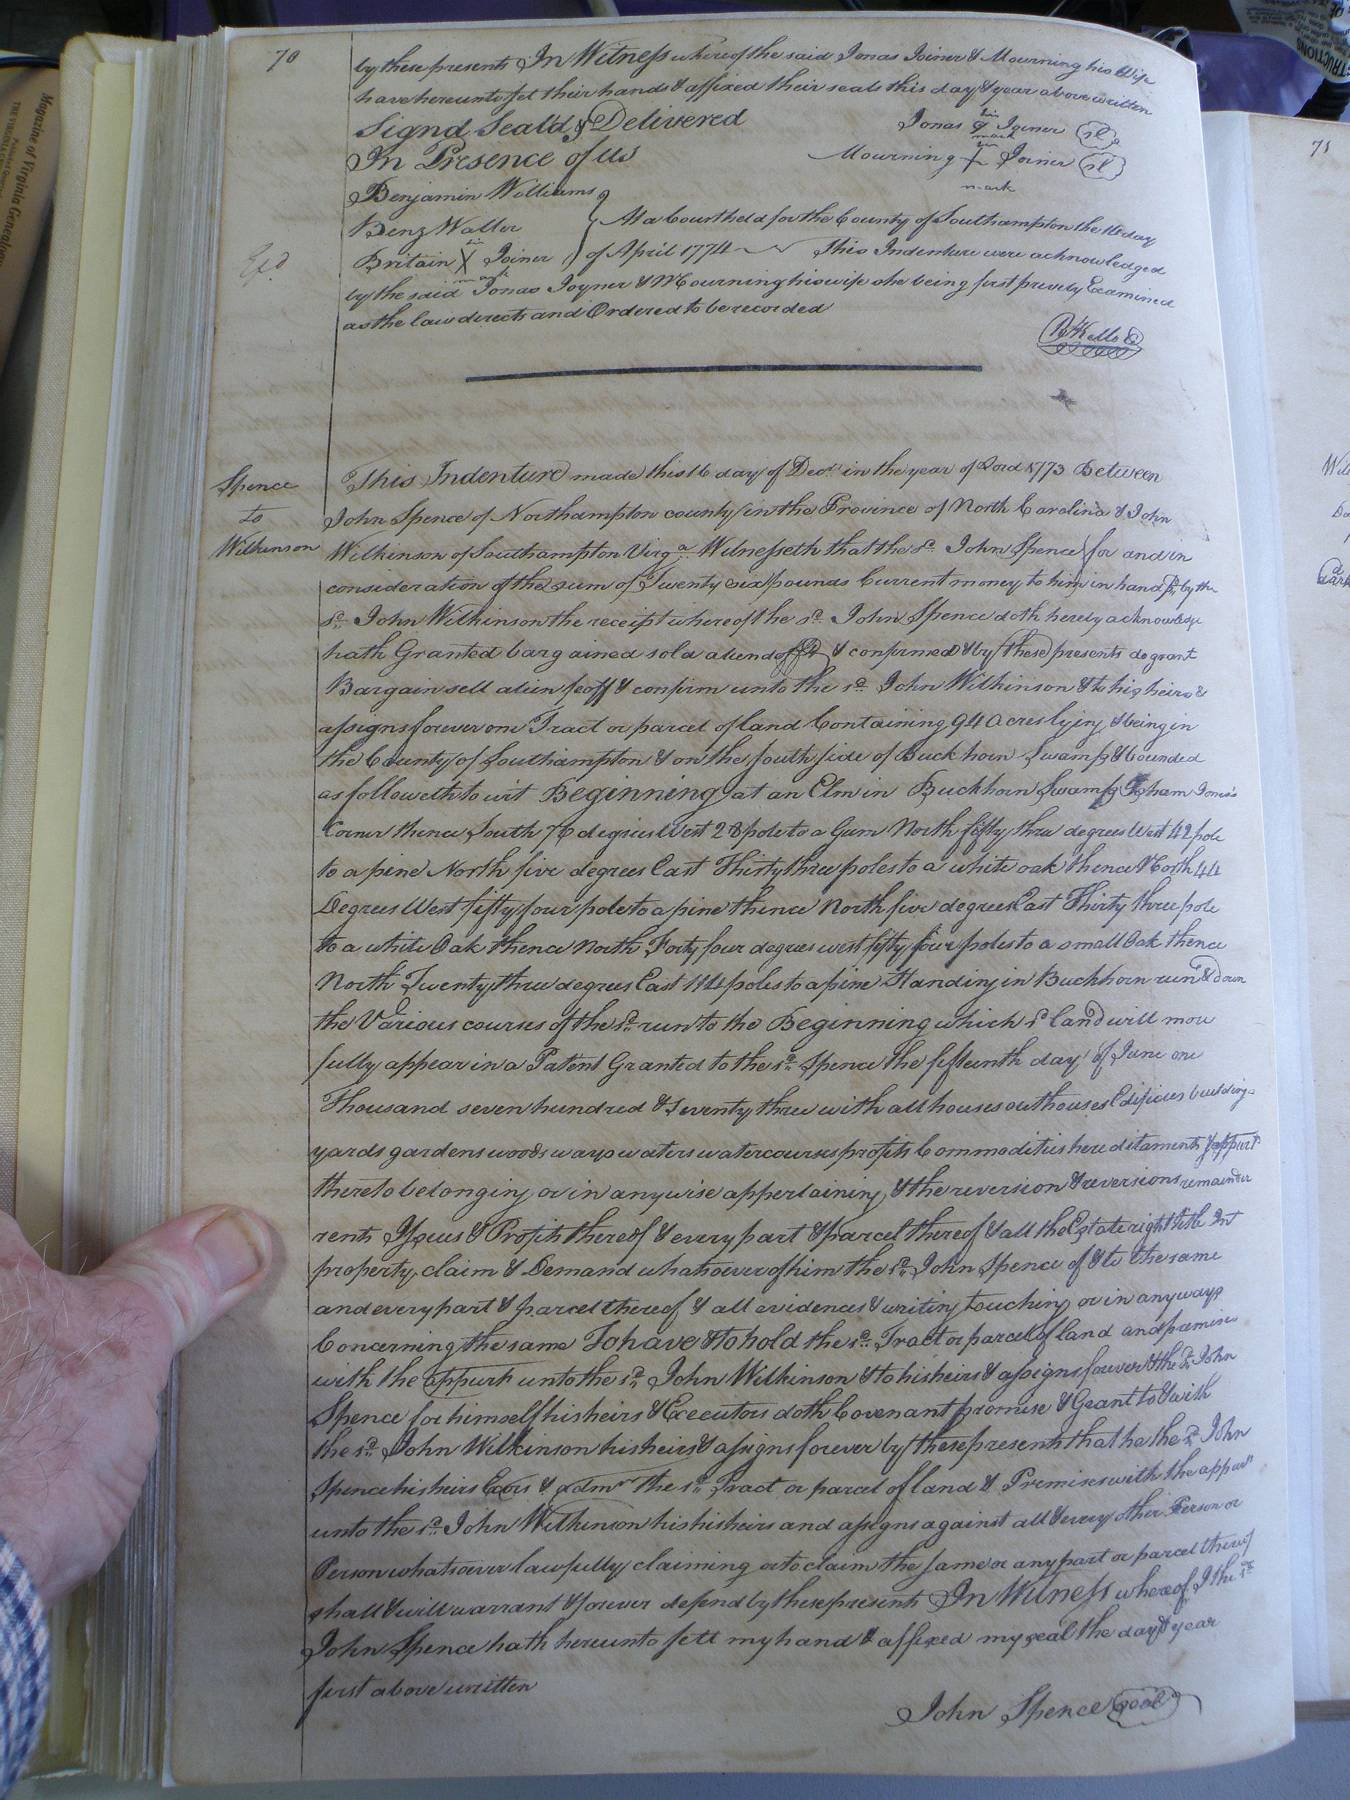 70
by these presents In Witness whereof the said Jonas Joiner & Mourning his Wife
have hereunto set their hands & affixed their seals this day & year above written
Signd Seald & Delivered
In Presence of us
his
Jonas Joiner
mark
his
Mourning Joiner
mark
Benjamin Williams
Benj Waller
Britain X Joiner
mark
At a Court held for the County of Southampton the day
of April 1774 This Indenture were acknowledged
Exd
by the said Jonas Joyner & Mourning his wife she being first privily Examined
as the law directs and Ordered to be recorded
Spence
to
Wilkinson
This Indenture made this 16 day of Decr. in the year of Lord 1773 Between
John Spence of Northampton county in the Province of North Carolina & John
Wilkinson of Southampton Virga. Witnesseth that the sd. John Spence for and in
consideration of the sum of Twenty six pounds Current money to him in hand pd. by the
sd. John Wilkinson the receipt whereof the sd. John Spence doth hereby acknowledge
hath Granted bargained sold aliend & confirmed & by these presents do grant
Bargain sell alien feoff & confirm unto the sd. John Wilkinson & to his heirs &
assigns forever one Tract or parcel of land Containing 94 Acres lying & being in
the County of Southampton & on the south side of Buck horn Swamp & bounded
as followeth to wit Beginning at an Elm in Buckhorn Swamp
Corner thence South 76 degrees West 28 pole to a Gum North fifty three degrees West 42 pole
to a pine North five degrees East Thirty three poles to a white oak thence North 44
Degrees West fifty four pole to a pine thence North five degrees East Thirty three pole
to a white Oak thence North Forty four degrees west fifty four poles to a small Oak thence
North Twenty three degrees East 114 poles to a pine Standing in Buckhorn run & down
the Various courses of the sd. run to the Beginning which sd. land will more
fully appear in a Patent Granted to the sd. Spence the fifteenth day of June one
Thousand seven hundred & Seventy three with all houses outhouses Edifices building
yards gardens woods ways waters watercourses profits Commodities hereditaments & appurt
thereto belonging or in anywise appertaining & the reversion & reversions remainder
rents Issues & Profits thereof & every part & parcel thereof & all the Estate right title Int
property claim & Demand whatsoever of him the sd. John Spence of & to the same
and every part & parcel thereof & all evidences & writing touching or in anyways
Concerning the same To have & to hold the sd. Tract or parcel of land and premises
with the appurt unto the sd. John Wilkinson & to his heirs & assigns forever & the sd. John
Spence for himself his heirs & Executors doth Covenant promise & Grant to & with
the sd. John Wilkinson his heirs & assigns forever by these presents that he the sd. John
Spence his heirs Exors & admr the sd. Tract or parcel of land & Premises with the appurt
unto the sd. John Wilkinson his his heirs and assigns against all & every other Person or
Person whatsoever lawfully claiming or to claim the same or any part or parcel thereof
shall & will warrant & forever defend by these presents In Witness whereof I the sd.
John Spence hath hereunto sett my hand & affixed my seal the day & year
first above written
John Spence seal
71
Magazine of Virginia Genealogy